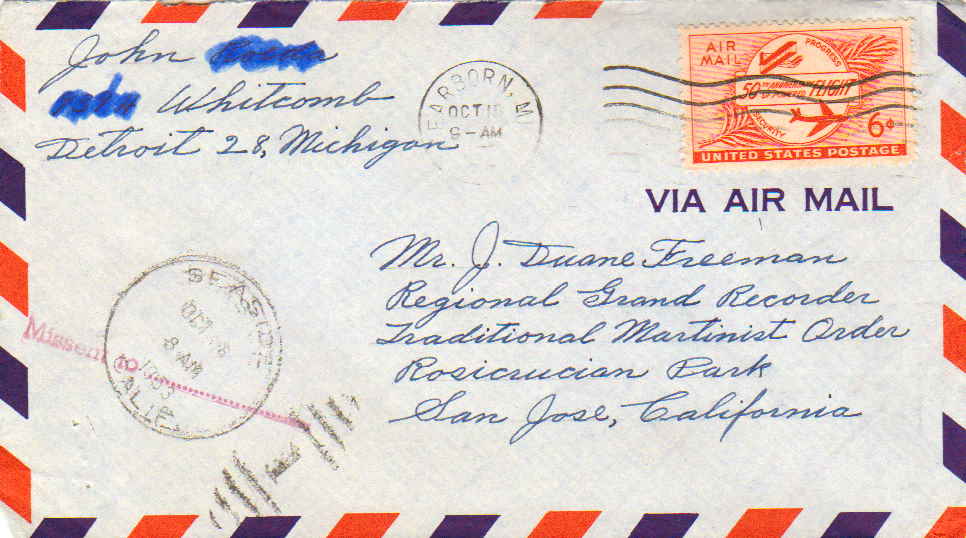 John
Whitcomb
Detroit 28, Michigan
EARBORN, M
OCT 1
9-AM
AIR
MAIL
PROGRESS
50TH ANNIVERSARY FLIGHT
SECURITY
6¢
UNITED STATES POSTAGE
VIA AIR MAIL
Mr. J. Duane Freeman
Regional Grand Recorder
Traditional Martinist Order
Rosicrucian Park
San Jose, California
SEASIDE
OCT 18
8 AM
1953
CALIF
Missent to